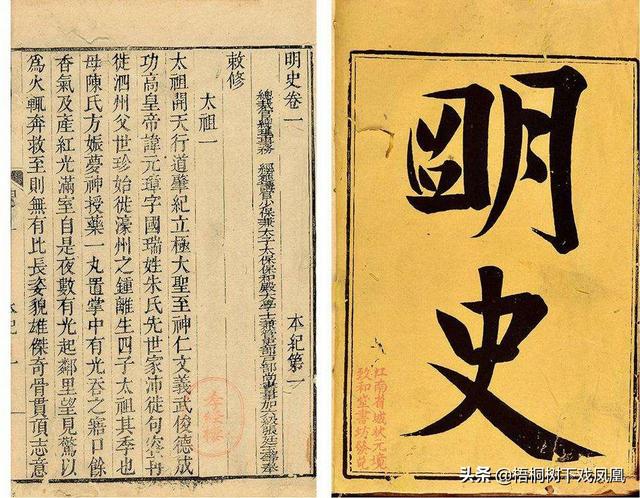 明史卷一 本紀第一
總裁官總理事務 經筵講官少保兼太子太保保和殿大學士兼管吏部戶部尚書事加六級張廷玉等奉
敕修
太祖一
太祖開天行道肇紀立極大聖至神仁文義武俊德成
功高皇帝諱元璋字國瑞姓朱氏先世家沛徙句容再
徙泗州父世珍始徙濠州之鍾離生四子太祖其季也
母陳氏方娠夢神授藥一丸置掌中有光吞之寤口餘
香氣及產紅光滿室自是夜數有光起鄰里望見驚以
爲火輒奔救至則無有比長姿貌雄傑奇骨貫頂志意
明史
江南省城狀元境
致和堂書坊發
头条 @梧桐树下戏凤凰